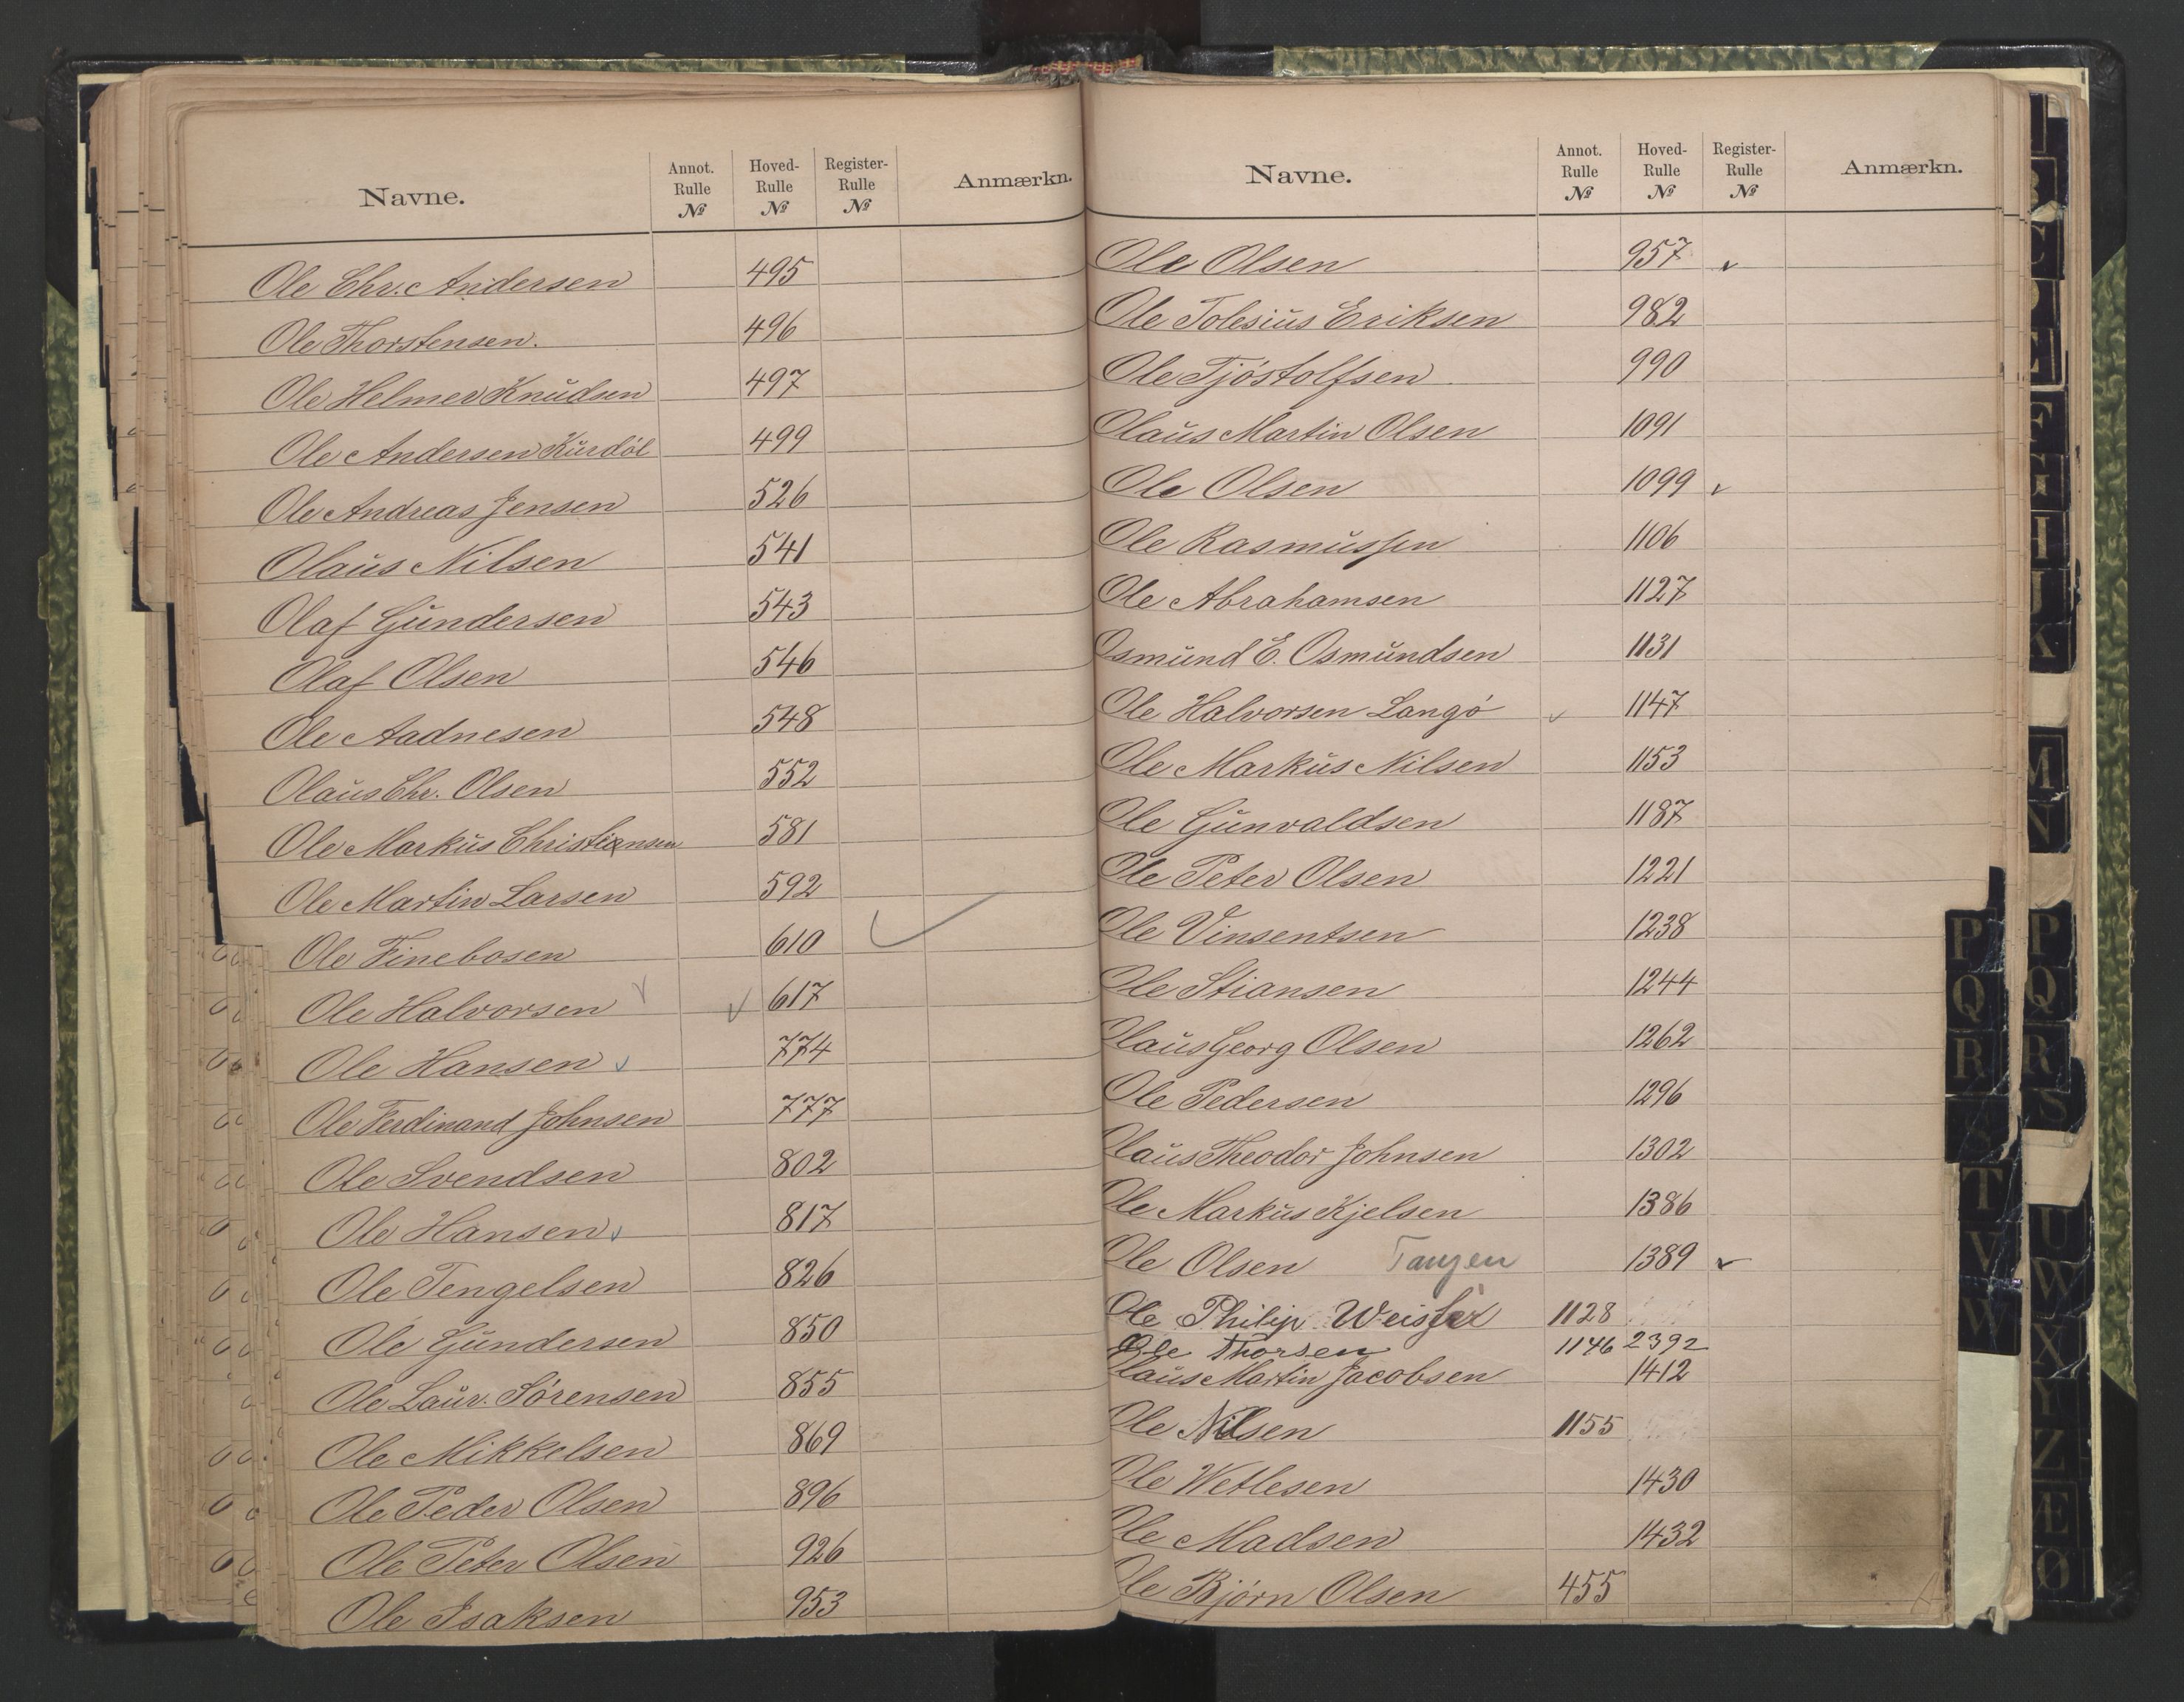 Navne. Annot. Rulle № Hoved- Rulle № Register- Rulle № Anmærkn.
Ole Chr. Andersen 495
Ole Thorstensen. 496
Ole Helmer Knudsen 497
Ole Andersen Kurdöl 499
Ole Andreas Jensen 526
Olaus Nilsen 541
Olaf Gundersen 543
Olaf Olsen 546
Ole Aadnesen 548
Olaus Chr. Olsen 552
Ole Markus Christiansen 581
Ole Martin Larsen 592
Ole Finebosen 610
Ole Halvorsen 617
Ole Hansen 774
Ole Ferdinand Johnsen 777
Ole Svendsen 802
Ole Hansen 817
Ole Tengelsen 826
Ole Gundersen 850
Ole Laur. Sörensen 855
Ole Mikkelsen 869
Ole Peder Olsen 896
Ole Peter Olsen 926
Ole Isaksen 953
Navne. Annot. Rulle № Hoved- Rulle № Register- Rulle № Anmærkn.
Ole Olsen 957
Ole Tolesius Eriksen 982
Ole Tjöstolfsen 990
Olaus Martin Olsen 1091
Ole Olsen 1099
Ole Rasmussen 1106
Ole Abrahamsen 1127
Osmund E. Osmundsen 1131
Ole Halvorsen Langö 1147
Ole Markus Nilsen 1153
Ole Gunvaldsen 1187
Ole Peter Olsen 1221
Ole Vinsentsen 1238
Ole Stiansen 1244
Olaus Georg Olsen 1262
Ole Pedersen 1296
Olaus Theodor Johnsen 1302
Ole Markus Kjelsen 1386
Ole Olsen Tangen 1389
Ole Philip 1128
Ole Thorsen 1146 2392
Olaus Martin Jacobsen 1412
Ole Nilsen 1155
Ole Wetlesen 1430
Ole Madsen 1432
Ole Björn Olsen 455